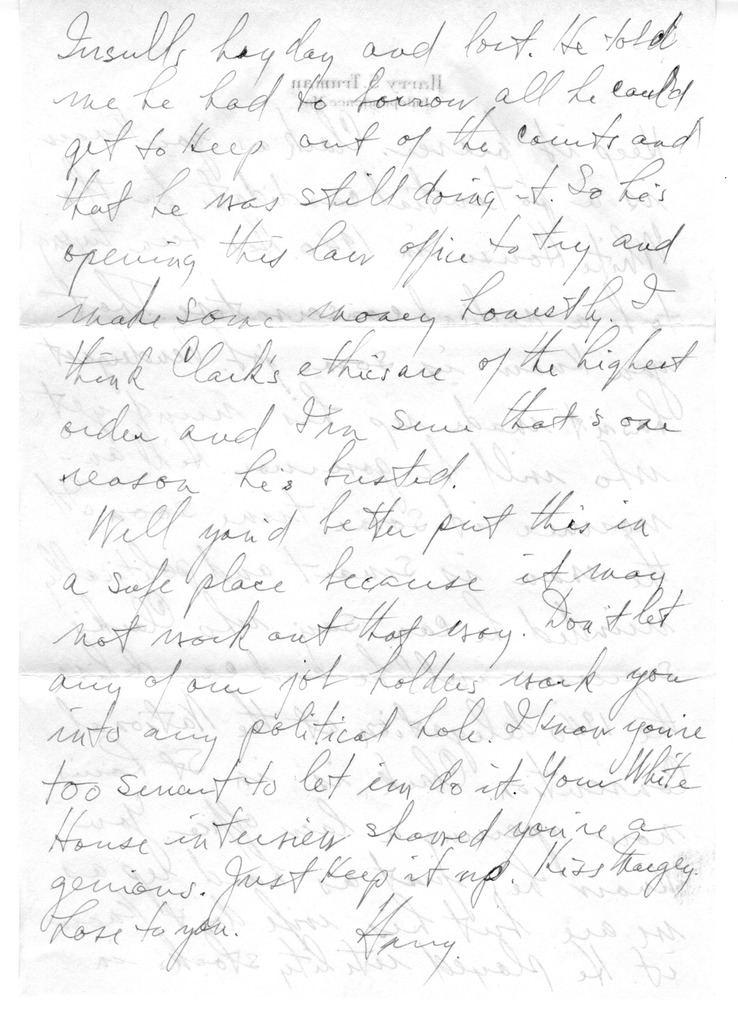 Insulls hayday and lost. He told
me he had to borrow all he could
get to keep out of the courts and
that he was still doing it. So he's
opening this law office to try and
make some money honestly. I
think Clark's ethics are of the highest
order and I'm sure that's one
reason he's busted.
Well you'd better put this in
a safe place because it may
not work out that way. Don't let
any of our job holders work you
into any political hole. I know you're
too smart to let em do it. Your White
House interview showed you're a
genious. Just keep it up. Kiss Margey.
Love to you. Harry.